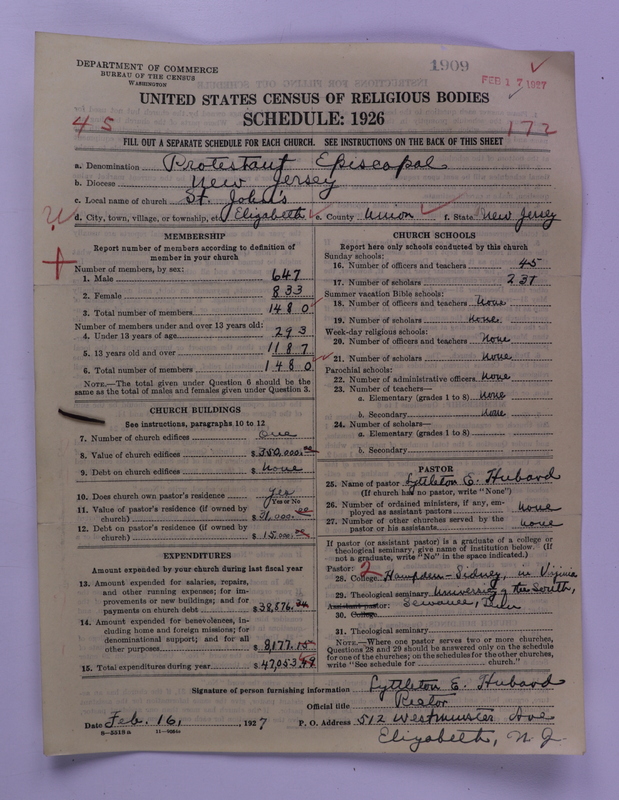 DEPARTMENT OF COMMERCE
BUREAU OF THE CENSUS
WASHINGTON
1909
FEB 17 1927
UNITED STATES CENSUS OF RELIGIOUS BODIES
SCHEDULE: 1926
45
172
FILL OUT A SEPARATE SCHEDULE FOR EACH CHURCH. SEE INSTRUCTIONS ON THE BACK OF THIS SHEET
a. Denomination Protestant Episcopal
b. Diocese New Jersey
c. Local name of church St. John's
d. City, town, village, or township, etc. Elizabeth e. County Union f. State New Jersey
MEMBERSHIP
Report number of members according to definition of member in your church
Number of members, by sex:
1. Male 647
2. Female 833
3. Total number of members 1480
Number of members under and over 13 years old:
4. Under 13 years of age 293
5. 13 years old and over 1187
6. Total number of members 1480
NOTE.—The total given under Question 6 should be the
same as the total of males and females given under Question 3.
CHURCH BUILDINGS
See instructions, paragraphs 10 to 12
7. Number of church edifices One
8. Value of church edifices $350,000.00
9. Debt on church edifices $ None
10. Does church own pastor's residence Yes
Yes or No
11. Value of pastor's residence (if owned by
church) $31,000.00
12. Debt on pastor's residence (if owned by
church) $15,000.00
EXPENDITURES
Amount expended by your church during last fiscal year
13. Amount expended for salaries, repairs,
and other running expenses; for im-
provements or new buildings; and for
payments on church debt $38,876.34
14. Amount expended for benevolences, in-
cluding home and foreign missions; for
denominational support; and for all
other purposes $8,177.15
15. Total expenditures during year $47,053.49
CHURCH SCHOOLS
Report here only schools conducted by this church
Sunday schools:
16. Number of officers and teachers 45
17. Number of scholars 237
Summer vacation Bible schools:
18. Number of officers and teachers None
19. Number of scholars None
Week-day religious schools:
20. Number of officers and teachers None
21. Number of scholars None
Parochial schools:
22. Number of administrative officers None
23. Number of teachers—
a. Elementary (grades 1 to 8) None
b. Secondary None
24. Number of scholars—
a. Elementary (grades 1 to 8)
b. Secondary
PASTOR
25. Name of pastor Lyttleton E. Hubard
(If church has no pastor, write "None")
26. Number of ordained ministers, if any, em-
ployed as assistant pastors None
27. Number of other churches served by the
pastor or his assistants None
If pastor (or assistant pastor) is a graduate of a college or
theological seminary, give name of institution below. (If
not a graduate, write "No" in the space indicated.)
Pastor: 2
28. College Hampden-Sidney, in Virginia
29. Theological seminary University of the South,
Assistant pastor: Sewanee, Tenn
30. College
31. Theological seminary
NOTE.—Where one pastor serves two or more churches,
Questions 28 and 29 should be answered only on the schedule
for one of the churches; on the schedules for the other churches,
write "See schedule for church."
Signature of person furnishing information Lyttleton E. Hubard
Official title Rector
Date Feb. 16, 1927 P. O. Address 512 Westminster Ave
8—5518a 11—9264
Elizabeth, N. J.